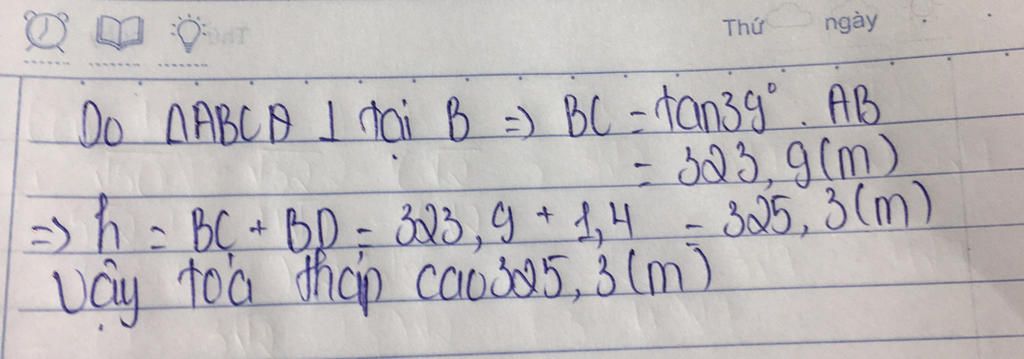 Thứ ngày
Do ΔABC Δ ⊥ tại B => BC = tan39° . AB
= 323,9(m)
=> h = BC + BD = 323,9 + 1,4 = 325,3(m)
Vậy toà tháp cao 325,3(m)